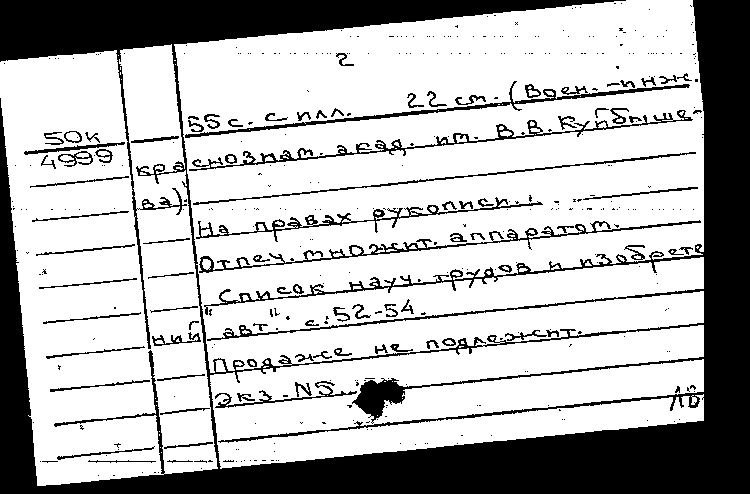 2
55 с. с илл. 22 см. (Воен.-инж.
50к
4999
краснознам. акад. им. В.В. Куйбыше-
ва).
На правах рукописи.
Отпеч. множит. аппаратом.
"Список науч. трудов и изобрете
ний авт.": с. 52-54.
Продаже не подлежит.
Экз. N5.